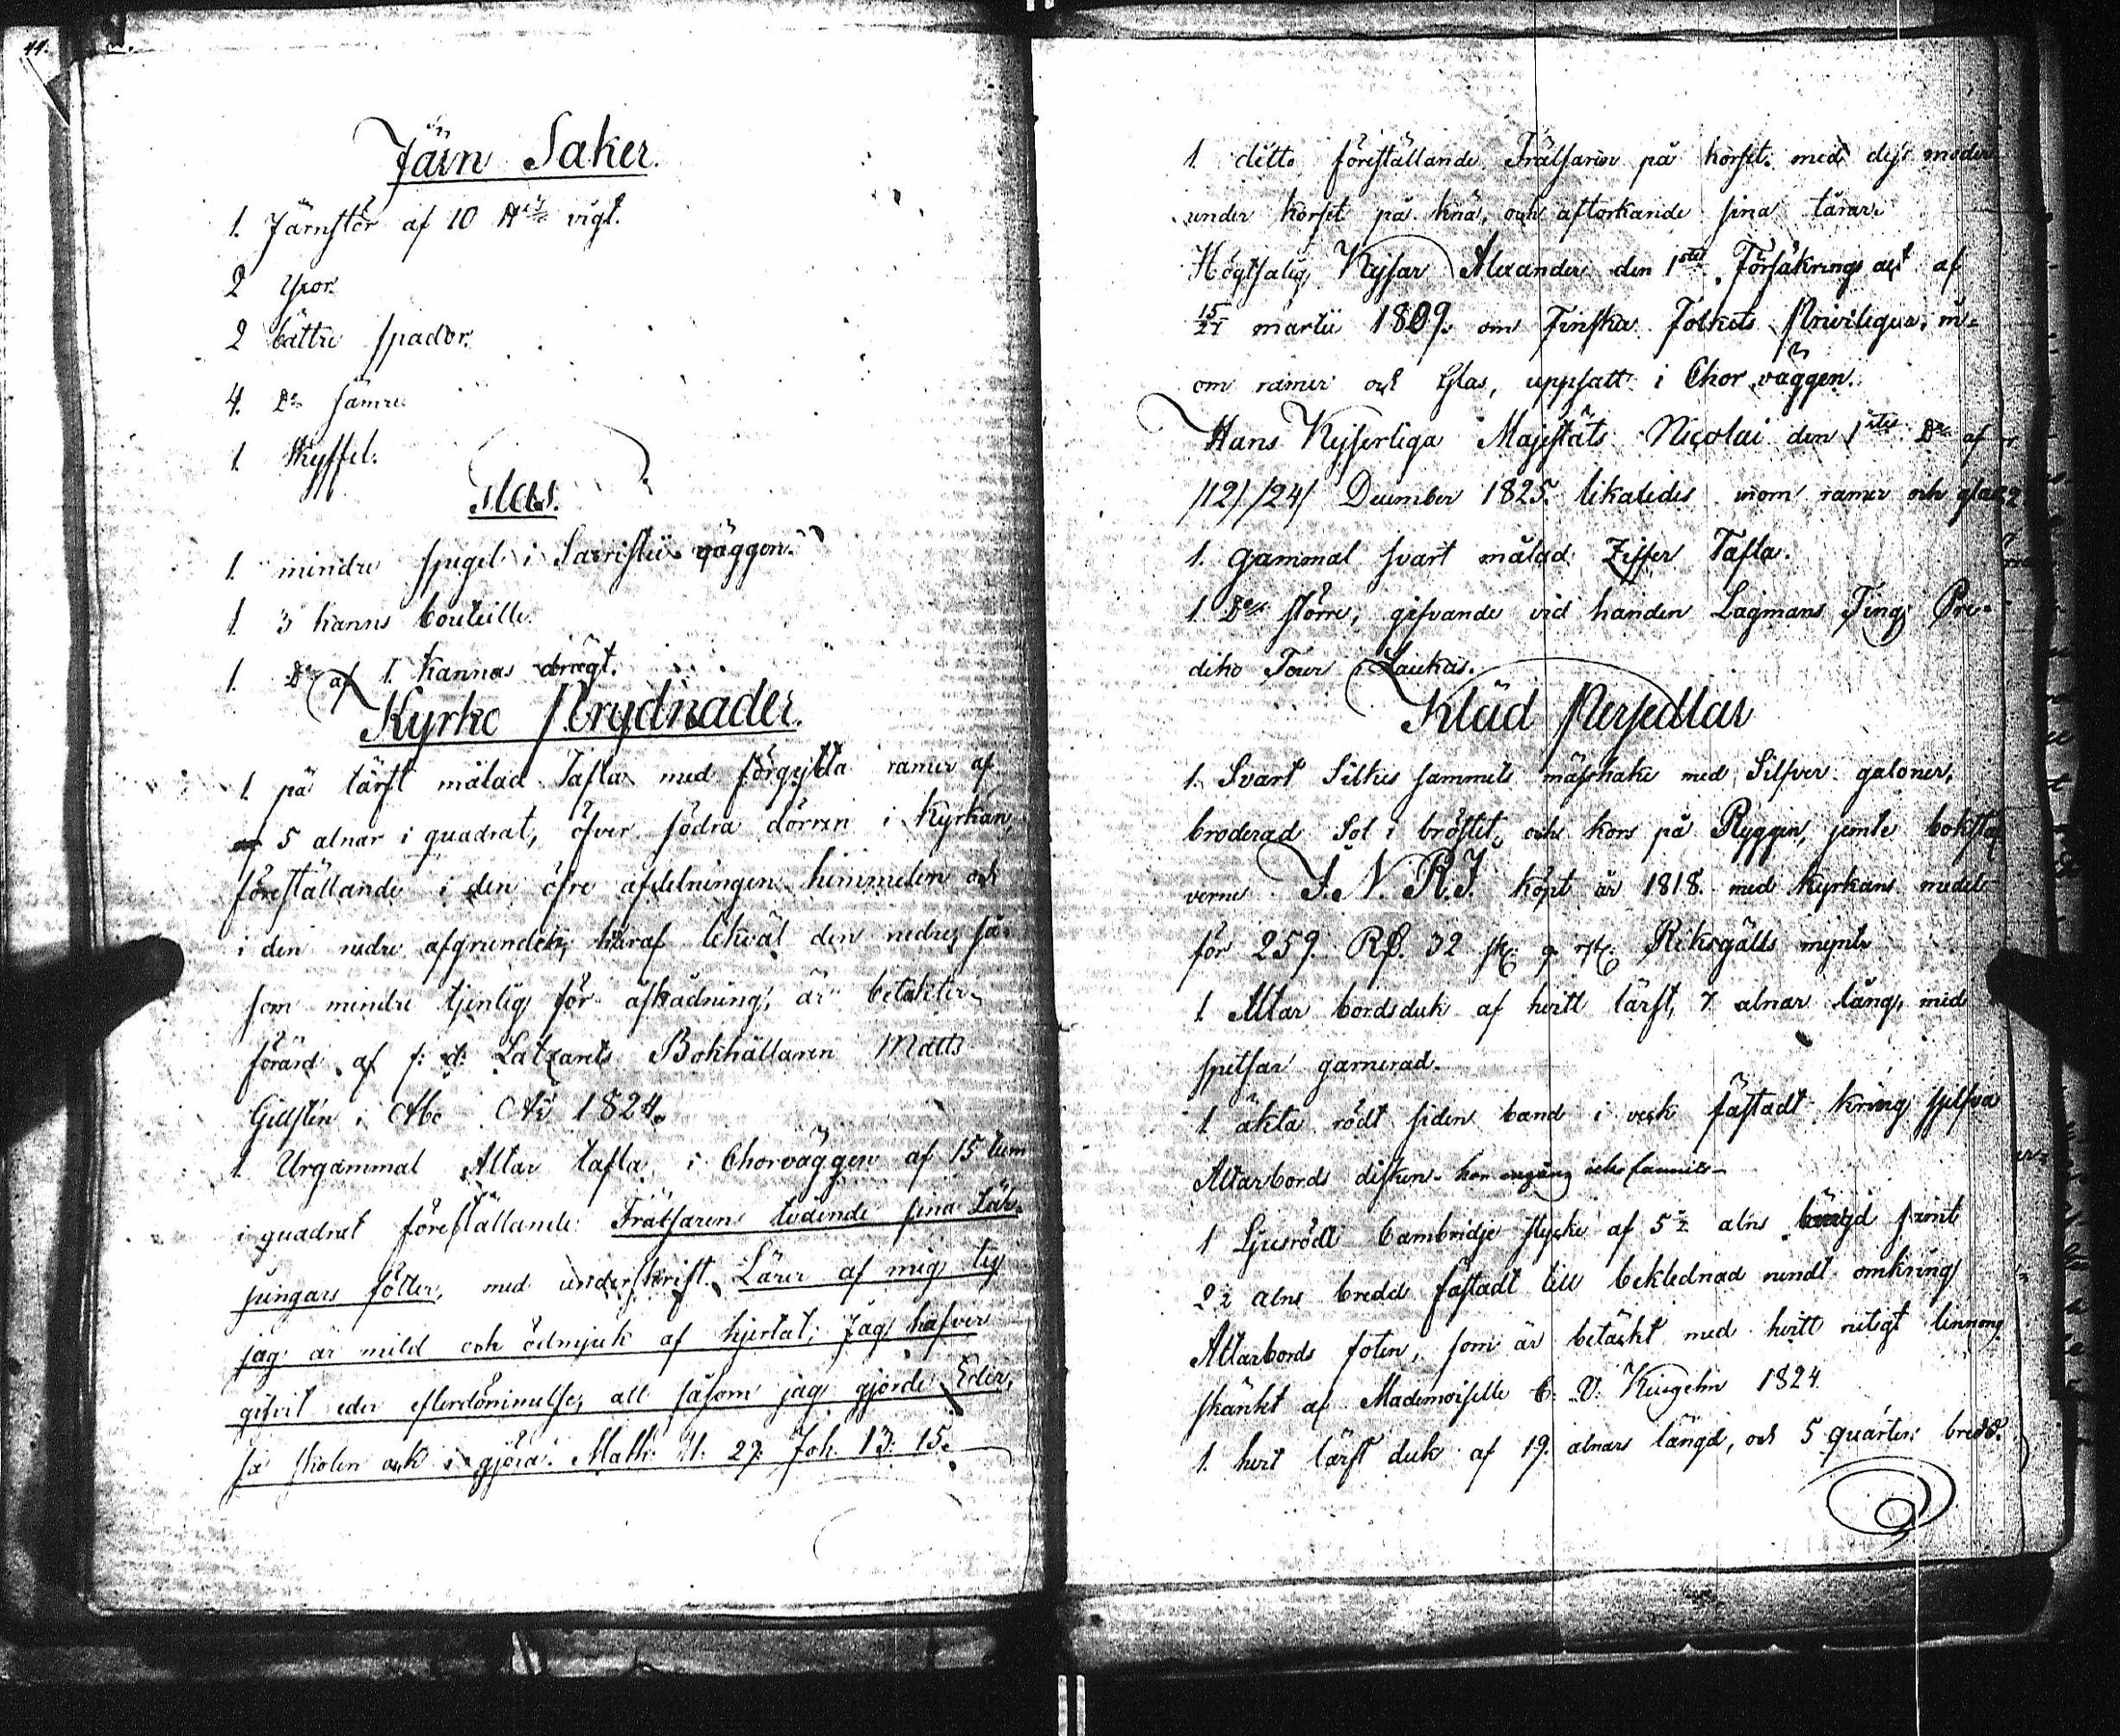 44.
Järn Saker.
1. Järnstör af 10 vigt.
2 Yxor.
2 bättre spador.
4. D:o sämre
1. Skyffel.
Glas.
1. mindre spegel i Sacristie väggen.
1. 3 kanns bouteille.
1. D:o af 1. kannas drägt.
Kyrko Prydnader.
1. på lärft målad Tafla med förgylda ramar af
5 alnar i quadrat, öfver södra dörren i Kyrkan,
föreställande i den öfre afdelningen himmelen och
i den nedre afgrunden, häraf likväl den nedre, så-
som mindre tjenlig för åskådning, är betäkter.
förärd af f: d: Latzarets Bokhållaren Matts
Gillstén i Åbo År 1824.
1. Urgammal Altar tafla i Chorväggen af 15 tum
i quadrat föreställande: Frälsaren tvående sina Lär-
jungars fötter, med underskrift. Lärer af mig ty
jag är mild och ödmjuk af hjertat; Jag hafver
gifvit eder efterdömmelse, att såsom jag gjorde Eder,
så skolen ock i gjöra. Math: 11: 29. Joh. 13: 15.
1. ditto föreställande Frälsaren på korset. med dess moder
under korset på knä, och aftorkande sina tårar.
Högtsalig Kejsar Alexander den 1stes Försäkrings act af
15/27 martii 1809. om Finska Folkets Privilegier, in-
om ramer och Glas, uppsatt i Chor väggen.
Hans Kejserliga Majestäts Nicolai den 1stes D:o af
/12/ /24/ December 1825. likaledes inom ramer och glas
1. gammal svart målad Ziffer Tafla.
1. D:o större, gifvande vid handen Lagmans Tings Pre-
diko Tour i Laukas.
Kläd Persedlar
1. Svart Silkes sammets mässhake med Silfver galoner,
broderad Sol i bröstet, och kors på Ryggen, jemte boksta-
verne I. N. R. I. köpt år 1818. med kyrkans medel
för 259. Rd. 32 sk. 9 rst. Riksgälds mynt
1. Altar bordsduk af hvitt lärft, 7 alnar lång, med
spetsar garnerad.
1. äkta rödt siden band i veck fästadt kring sjelfva
Altarbords disken.
1 Ljusrödt Cambridje stycke af 5 1/2 alns längd samt
2 1/2 alns bredd fästadt till beklednad rundt omkring
Altarbords foten, som är betäckt med hvitt rutigt linnong
skänkt af Mademoiselle C: U: Kiugelin 1824.
1. hvit lärft duk af 19. alnars längd, och 5 quarter bredd.